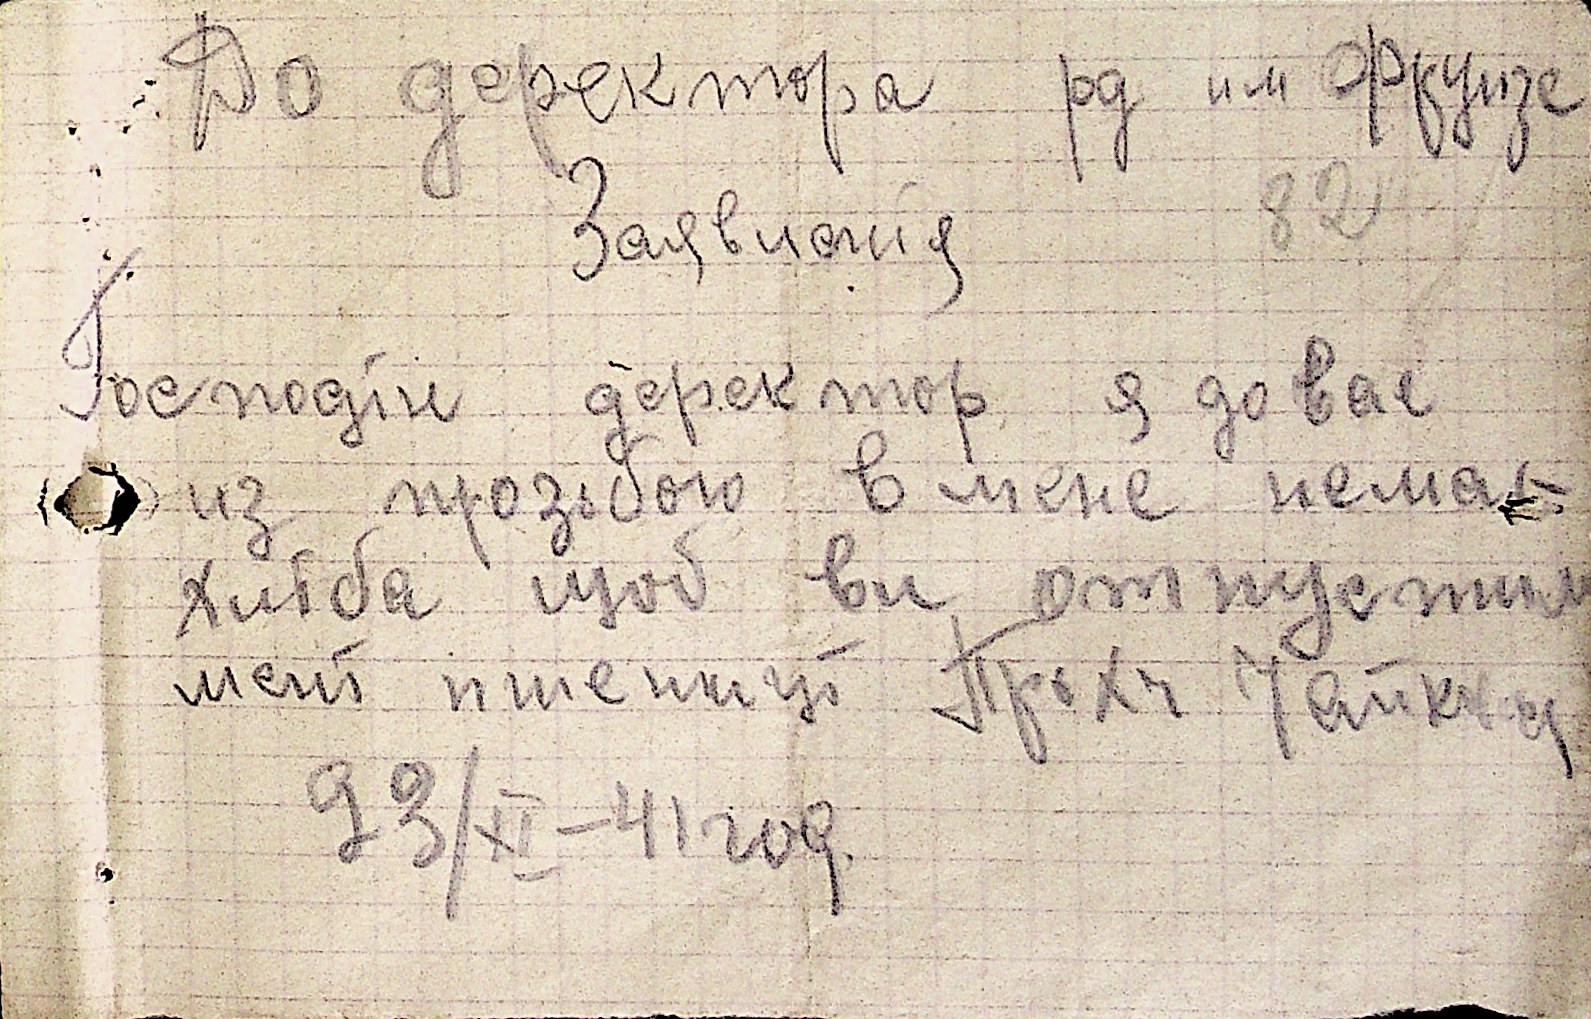 До деректора рд им Фрунзе
Заявленія
82
Господін деректор я до вас
из прозьбою в мене немає
хліба щоб ви отпустили
мені пшениці Чайкия
23/XII-41 год.